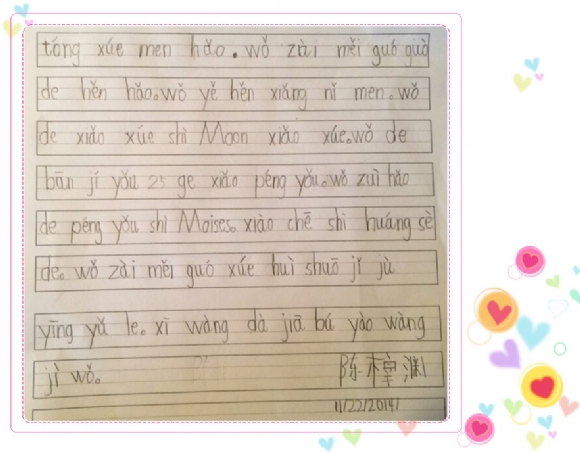 tóng xúe men hǎo。wǒ zài měi guó guò
de hěn hǎo。wǒ yě hěn xiǎng nǐ men。wǒ
de xiǎo xúe shì Moon xiǎo xúe。wǒ de
bān jí yǒu 25 ge xiǎo péng yǒu。wǒ zuì hǎo
de péng yǒu shì Moises。xiào chē shì huáng sè
de。wǒ zài měi guó xúe huì shuō jǐ jù
yīng yǔ le。xī wàng dà jiā bú yào wàng
jì wǒ。 陈樟渊
11/22/2014